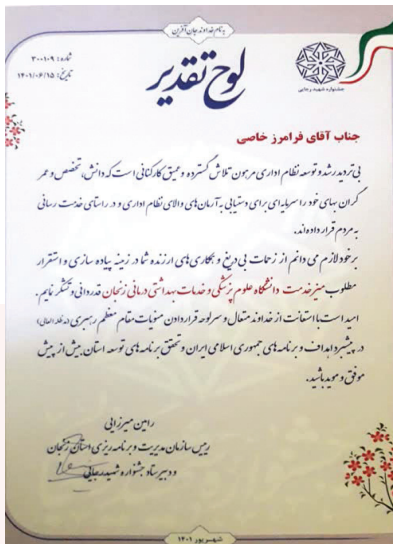 به نام خداوند جان آفرین
شماره: ۳۰۰۱۰۹
تاریخ: ۱۴۰۱/۰۶/۱۵
لوح تقدیر
جشنواره شهید رجایی
جناب آقای فرامرز خاصی
بی تردید رشد و توسعه نظام اداری مرهون تلاش گسترده و عمیق کارکنانی است که دانش، تخصص و عمر
گران بهای خود را سرمایه ای برای دستیابی به آرمان های والای نظام اداری و در راستای خدمت رسانی
به مردم قرار داده اند.
بر خود لازم می دانم از زحمات بی دریغ و همکاری های ارزنده شما در زمینه پیاده سازی و استقرار
مطلوب میز خدمت دانشگاه علوم پزشکی و خدمات بهداشتی درمانی زنجان قدردانی و تشکر نمایم.
امید است با استعانت از خداوند متعال و سرلوحه قرار دادن منویات مقام معظم رهبری (مدظله العالی)
در پیشبرد اهداف و برنامه های جمهوری اسلامی ایران و تحقق برنامه های توسعه استان بیش از پیش
موفق و موید باشید.
رامین میرزایی
رییس سازمان مدیریت و برنامه ریزی استان زنجان
و دبیر ستاد جشنواره شهید رجایی
شهریور ۱۴۰۱